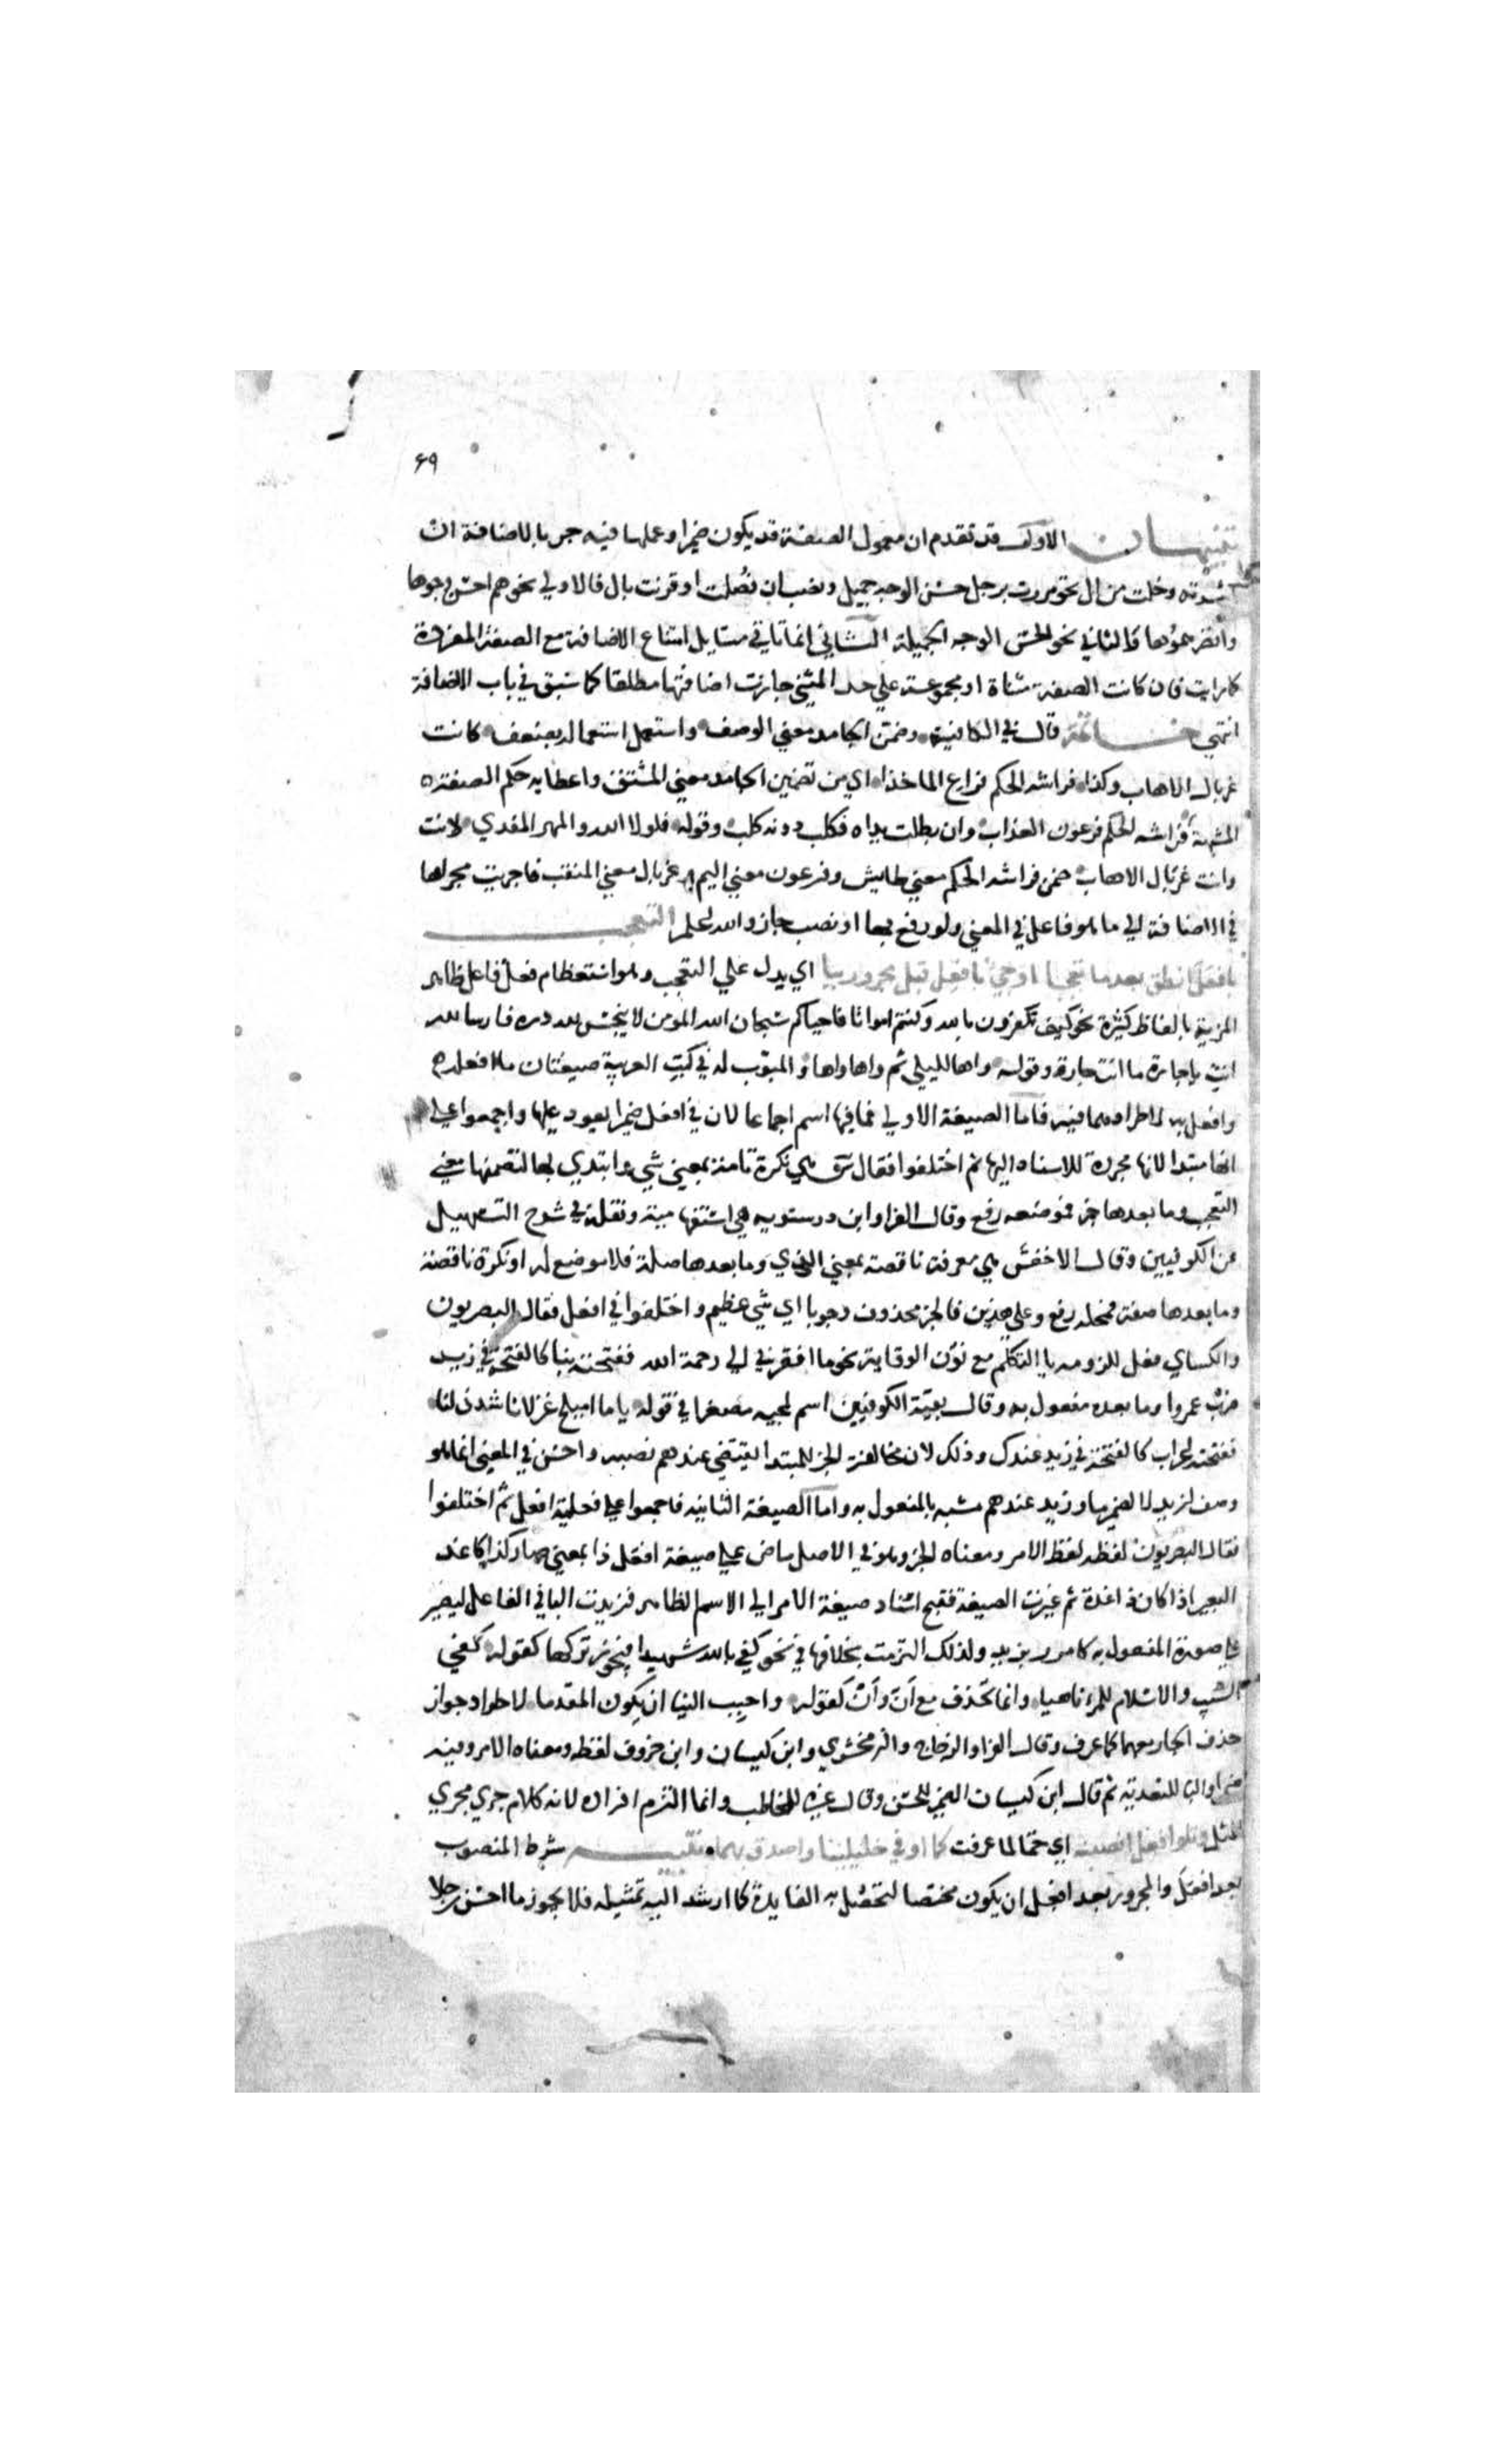 ٦٩
تنبيهان الاول قد تقدم ان معمول الصفة قد يكون ضميرا وعملها فيه جر بالاضافة ان
وخلت من ال نحو مررت برجل حسن الوجه جميله ونصب ان فصلت او قرنت بال فالاولي نحو هم احسن وجوها
وانضرهموها والثاني نحو الحسن الوجه الجميله الثاني انما تاتي مسايل امتناع الاضافة مع الصفة المفردة
كما رايت فان كانت الصفة مثناة او مجموعة علي حد المثني جازت اضافتها مطلقا كما سبق في باب الاضافة
انتهي خاتمة قال في الكافية وضمن الجامد معني الوصف واستعمل استعماله بضعف كانت
غربال الاهاب وكذا فراشه الحكم فراع الماخذا اي من تضمين الجامد معني المشتق واعطايه حكم الصفة
المشبهة فراشه الحكم فرعون العذاب وان يطلب نداه فكلب دونه كلب وقوله فلولا الله والمهر المفدي لابت
وانت غربال الاهاب ضمن فراشه الحكم معني طايش وفرعون معني اليم وغربال معني المثقب فاجريت مجراها
في الاضافة الي ما هو فاعل في المعني ولو رفع بها او نصب جاز والله اعلم التعجب
بافعل انطق بعد ما تعجبا او جئ بافعل قبل مجرور ببا اي يدل علي التعجب وهو استعظام فعل فاعل ظاهر
المزية بالفاظ كثيرة نحو كيف تكفرون بالله وكنتم امواتا فاحياكم سبحان الله المومن لا ينجس لله دره فارسا لله
انت يا جارتا ما انت جارة وقوله واها لليلي ثم واها واها والمبوب له في كتب العربية صيغتان ما افعله
وافعل به لاطرادهما فيه فاما الصيغة الاولي فما فيها اسم اجماعا لان في افعل ضميرا يعود عليها واجمعوا علي
انها مبتدا لانها مجردة للاسناد اليها ثم اختلفوا فقال س هي نكرة تامة بمعني شي وابتدي بها لتضمنها معني
التعجب وما بعدها خبر فموضعه رفع وقال الفرا وابن درستويه هي استفهامية ونقله في شرح التسهيل
عن الكوفيين وقال الاخفش هي معرفة ناقصة بمعني الذي وما بعدها صلة فلا موضع له او نكرة ناقصة
وما بعدها صفة فمحله رفع وعلي هذين فالخبر محذوف وجوبا اي شي عظيم واختلفوا في افعل فقال البصريون
والكساي فعل للزومه يا المتكلم مع نون الوقاية نحو ما افقرني الي رحمة الله ففتحته بنا كالفتحة في زيد
ضرب عمروا وما بعده مفعول به وقال بقية الكوفيين اسم لمجيه مصغرا في قوله يا ما اميلح غزلانا شدن لنا
ففتحته اعراب كالفتحة في زيد عندك وذلك لان مخالفة الخبر للمبتدا يقتضي عندهم نصبه واحسن في المعني انما هو
وصف لزيد لا لضمير ما وزيد عندهم مشبه بالمفعول به واما الصيغة الثانيه فاجمعوا علي فعلية افعل ثم اختلفوا
فقال البصريون لفظه لفظ الامر ومعناه الخبر وهو في الاصل ماض علي صيغة افعل ذا بمعني صار كذا كاغد
البعير اذا كان ذا غدة ثم غيرت الصيغة فقبح اسناد صيغة الامر الي الاسم الظاهر فزيدت البا في الفاعل ليصير
علي صورة المفعول به كامرر بزيد ولذلك التزمت بخلافها في نحو كفي بالله شهيدا فيجوز تركها كقوله كفي
الشيب والاسلام للمرء ناهيا وانما تحذف مع ان وان كقوله واحبب الينا ان يكون المقدما لاطراد جواز
حذف الجار معهما كما عرف وقال الفرا والزجاج والزمخشري وابن كيسان وابن خروف لفظه ومعناه الامر وفيه
ضمير والبا للتعدية ثم قال ابن كيسان الضمير للحسن وقال غيره للمخاطب وانما التزم افراده لانه كلام جري مجري
المثل وتلو افعل انصبنه اي حتما لما عرفت كما اوفي خليلينا واصدق بهما تنبيه شرط المنصوب
بعد افعل والمجرور بعد افعل ان يكون مختصا لتحصل به الفايدة كما ارشد اليه تمثيله فلا يجوز ما احسن رجلا